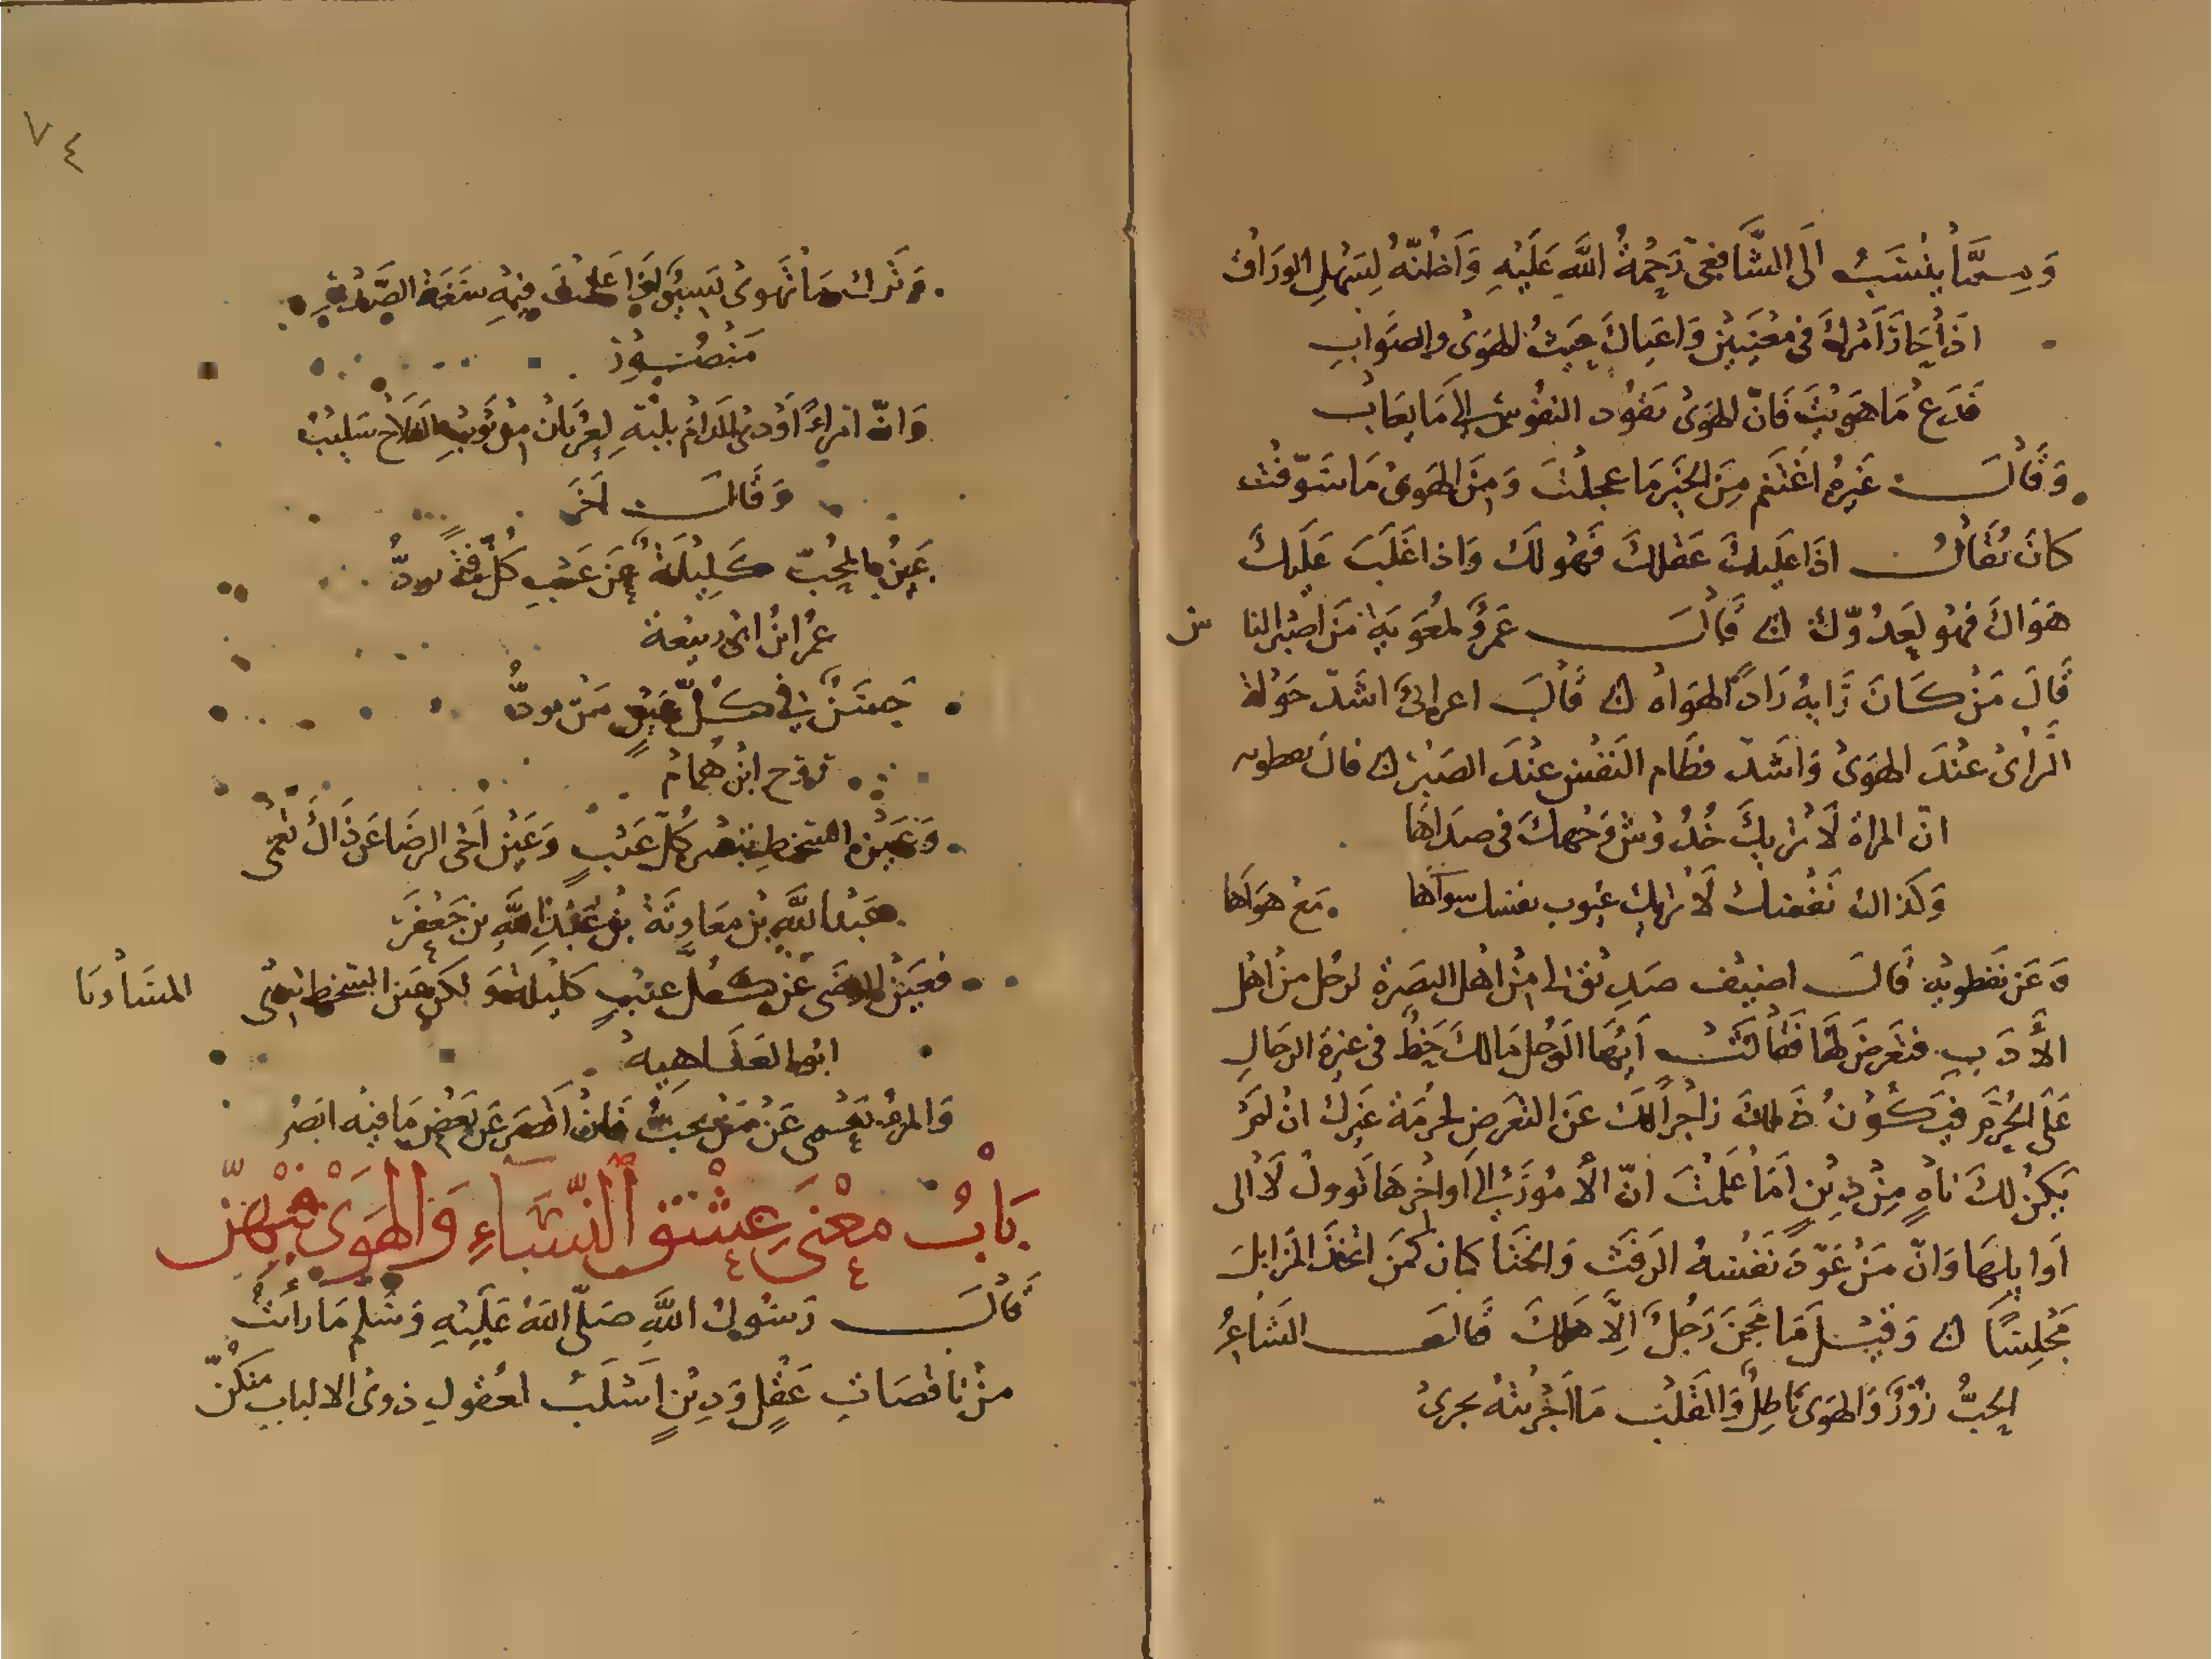 وَمِمَّا يُنْسَبُ الَى الشَّافِعِي رَحْمَةُ اللَّهِ عَلَيْهِ وَاَظُنّهُ لِسَهْلِ الورَاقِ
اذَا حَارَ اَمْرُكَ فى مَعْنَيَيْنِ وَاَعيَاكَ حَيثُ الهَوَىٰ والصَوَابِ
فَدَع مَا هَوِيْتَ فَانّ الهَوَىٰ يَقوُد النفوُسَ الى مَا يعَابُ
وَقَالَ غَيرُه اغْتَنِم مِنَ الخَيرِ مَا عجلْتَ وَمِنَ الهَوىٰ مَا سَوّفْتَ
كانَ يُقَالُ اذَا غلَبكَ عَقْلكَ فَهُو لكَ وَاذا غَلَبَ عَلَيكَ
هَوَاكَ فهُو لِعَدُوّكَ قَالَ عَمروٌ لمعٰوِيَة مَن اصْبَر النا س
قَالَ مَنْ كَانَ رَايهُ رَادًّا لهَوَاهُ قَالَ اعرابىٌّ اشَدّ جَوْلة
الرَّاىْ عنْدَ الهَوىٰ وَاشَدّ فطَام النَفْس عنْدَ الصَبْر قالَ نفطويه
انّ المراة لَا تريكَ خُدُوشَ وَجْهكَ فى صَدَاهَا
وَكَذاك نَفْسُكَ لَا تريكَ عيُوب نفسك سواها مَعْ هوَاهَا
وَعَن نفَطويْهِ قَالَ اضيف صَدِيْق لى مِنْ اهْل البَصَرة لرجُل مِنْ اهْل
الأَدَبِ فتَعَرضَ لهَا فَقَالَتْ اَيُّهَا الرَجُل مَا لكَ حَظٌّ فى غيرَة الرجَالِ
عَلَى الحُرَمِ فيَكُوْنُ ذَلكَ زاجْراً لكَ عَن التعَرضِ لحُرْمَة غَيرِكَ انْ لَمْ
يَكُنْ لكَ نَاهٍ مِنْ دِيْنٍ اَمَا عَلمْتَ انّ الأُمُورَ الى اَواخِرهَا تَوول لَا الى
اَوايلِهَا وَانّ مَنْ عَوّدَ نَفْسهُ الرَفَثَ وَالخَنَا كان كمَن اتخَذَ المزَابلَ
مَجْلِسًا وَقيْلَ مَا مَجَنَ رَجُلٌ اِلَّا هَلكَ قَالَ الشَاعِرُ
الحُبُّ زُوْرٌ وَالهَوىٰ بَاطِلٌ وَالقَلْبُ مَا اَجْرَيْتَهُ يجرىٰ
٧٤
وَتَرك مَا تهوىٰ فيهِ سَعَة الصَّدْرِ
مَنْصُوْر
وَانّ امْراءً اَوْدىٰ الغَرَامُ بلُبِّهِ لعُرْيَانُ مِنْ ثَوْبِ الفَلَاحِ سَلِيْبُ
وَقَالَ اَخَر
عَيْنُ المحُبّ كَلِيْلَةٌ عَن عَيْبِ كُلّ
عُمر ابنُ ابى رَبيْعَة
حَسَنٌ فى كُلِّ عَيْنٍ مَنْ تودُّ
روح ابنُ هُمَامْ
وَعَيْنُ السّخْطِ تبْصر كُلّ عَيْبٍ وَعَيْن اَخى الرضَا عَن ذَاكَ تَعْمٰى
عَبْدُ اللَّهِ بنْ معَاويَةْ بْن عَبْدِ اللَّهِ بن جَعْفَرْ
فعَيْنُ الرضَى عَنْ كُلِّ عَيْبٍ كَليْلةٌ وَلكَن عَيَن السّخْط تُبْدى المسَاوِيَا
ابُو العَتَاهِيهْ
وَالمرءُ يَعْمى عَنْ مَنْ يحبُّ فَانْ اَقصَر عَن بَعْض مَا فيه ابْصَرُ
بَابُ مَعْنَى عِشْقِ النّسَاءِ وَالهَوَىْ فِيْهِنّ
قَالَ رَسُولُ اللَّهِ صَلّى اللهُ عَلَيْهِ وَسَلم مَا رَأَيْتُ
مِنْ نَاقصَاتِ عَقْلٍ وَدِيْنٍ اَسْلَبَ لعُقولِ ذوىْ الالبابِ مِنكُنّ